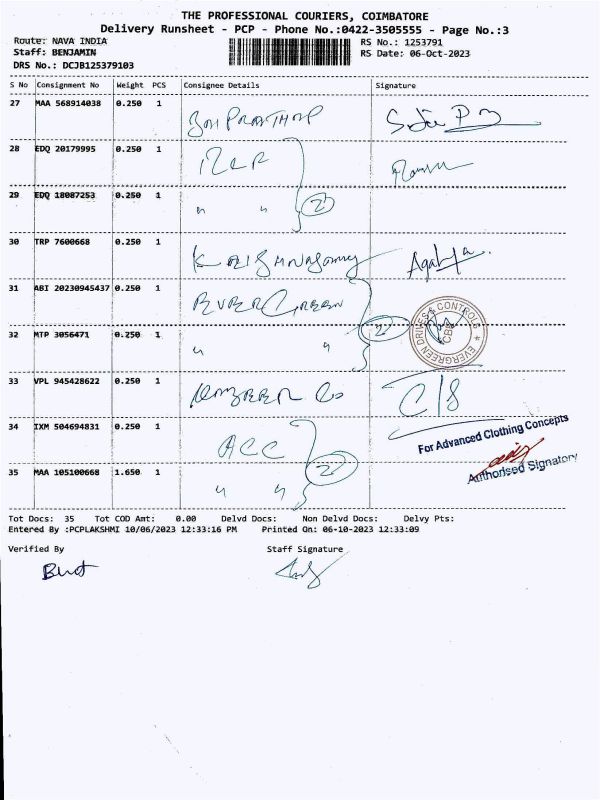 THE PROFESSIONAL COURIERS, COIMBATORE
Delivery Runsheet - PCP - Phone No.:0422-3505555 - Page No.:3
Route: NAVA INDIA
RS No.: 1253791
Staff: BENJAMIN
RS Date: 06-Oct-2023
DRS No.: DCJB125379103
S No Consignment No Weight PCS Consignee Details Signature
27 MAA 568914038 0.250 1
28 EDQ 20179995 0.250 1
29 EDQ 18087253 0.250 1 " " 2
30 TRP 7600668 0.250 1
31 ABI 20230945437 0.250 1 EVERGREEN
32 MTP 3056471 0.250 1 " " 2
EVERGREEN DRIVES & CONTROLS
CBE
33 VPL 945428622 0.250 1
34 IXM 504694831 0.250 1 ACC
For Advanced Clothing Concepts
35 MAA 105100668 1.650 1 " " 2
Authorised Signatory
Tot Docs: 35 Tot COD Amt: 0.00 Delvd Docs: Non Delvd Docs: Delvy Pts:
Entered By :PCPLAKSHMI 10/06/2023 12:33:16 PM Printed On: 06-10-2023 12:33:09
Verified By Staff Signature